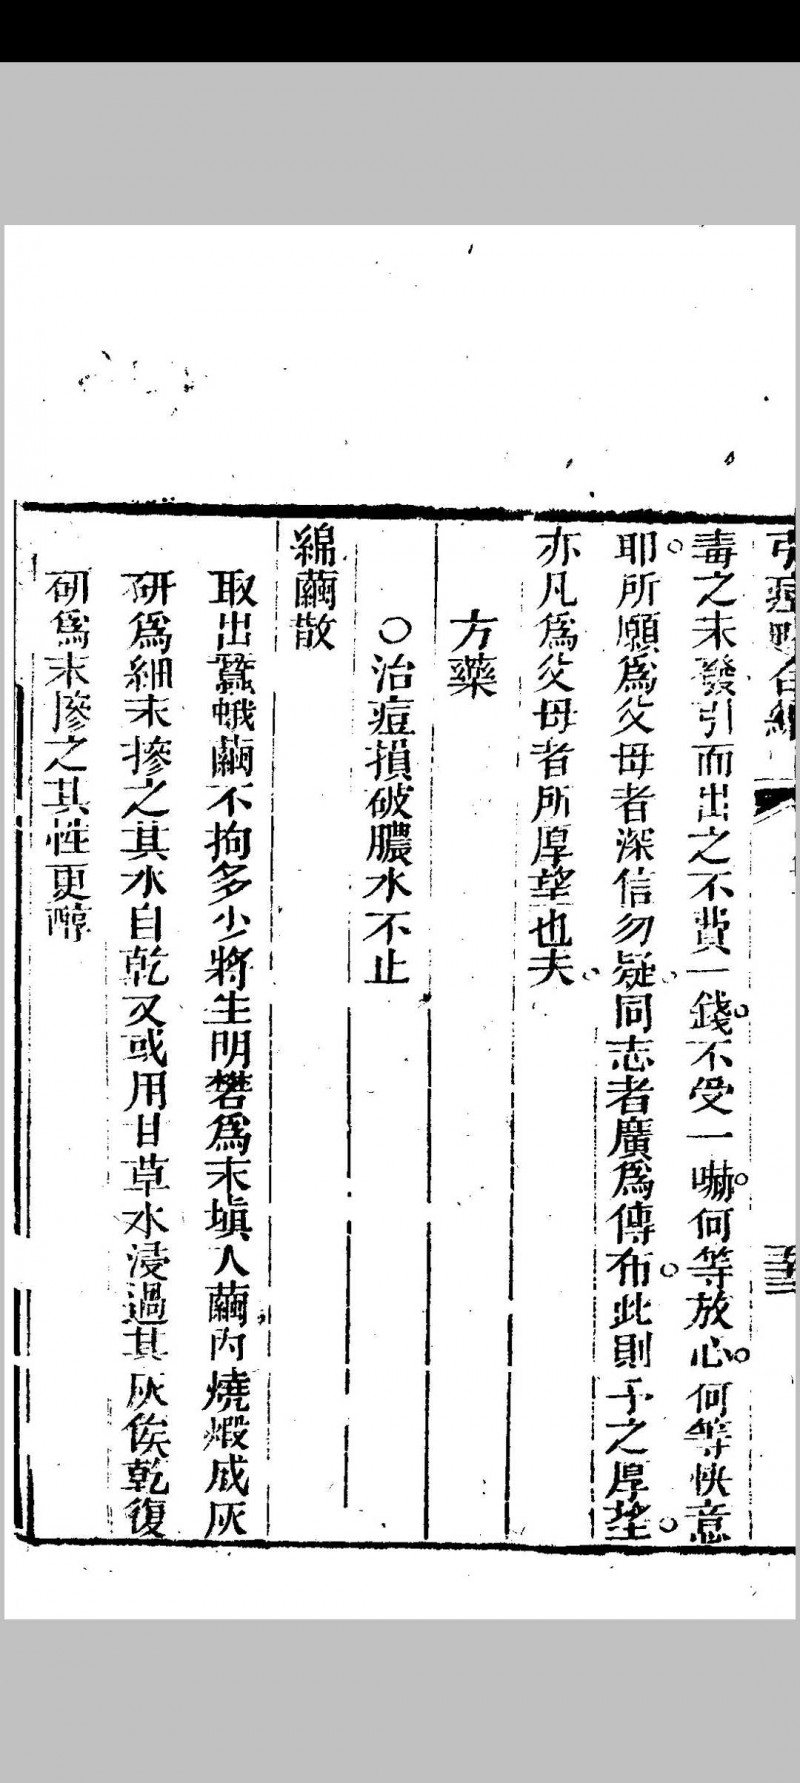 引痘略合編
毒之未發引而出之不費一錢不受一嚇何等放心何等快意
耶所願爲父母者深信勿疑同志者廣爲傳布此則予之厚望
亦凡爲父母者所厚望也夫
方藥
○治痘損破膿水不止
綿繭散
取出蠶蛾繭不拘多少將生明礬爲末塡入繭內燒煅成灰
研爲細末摻之其水自乾又或用甘草水浸過其灰俟乾復
研爲末摻之其性更醇